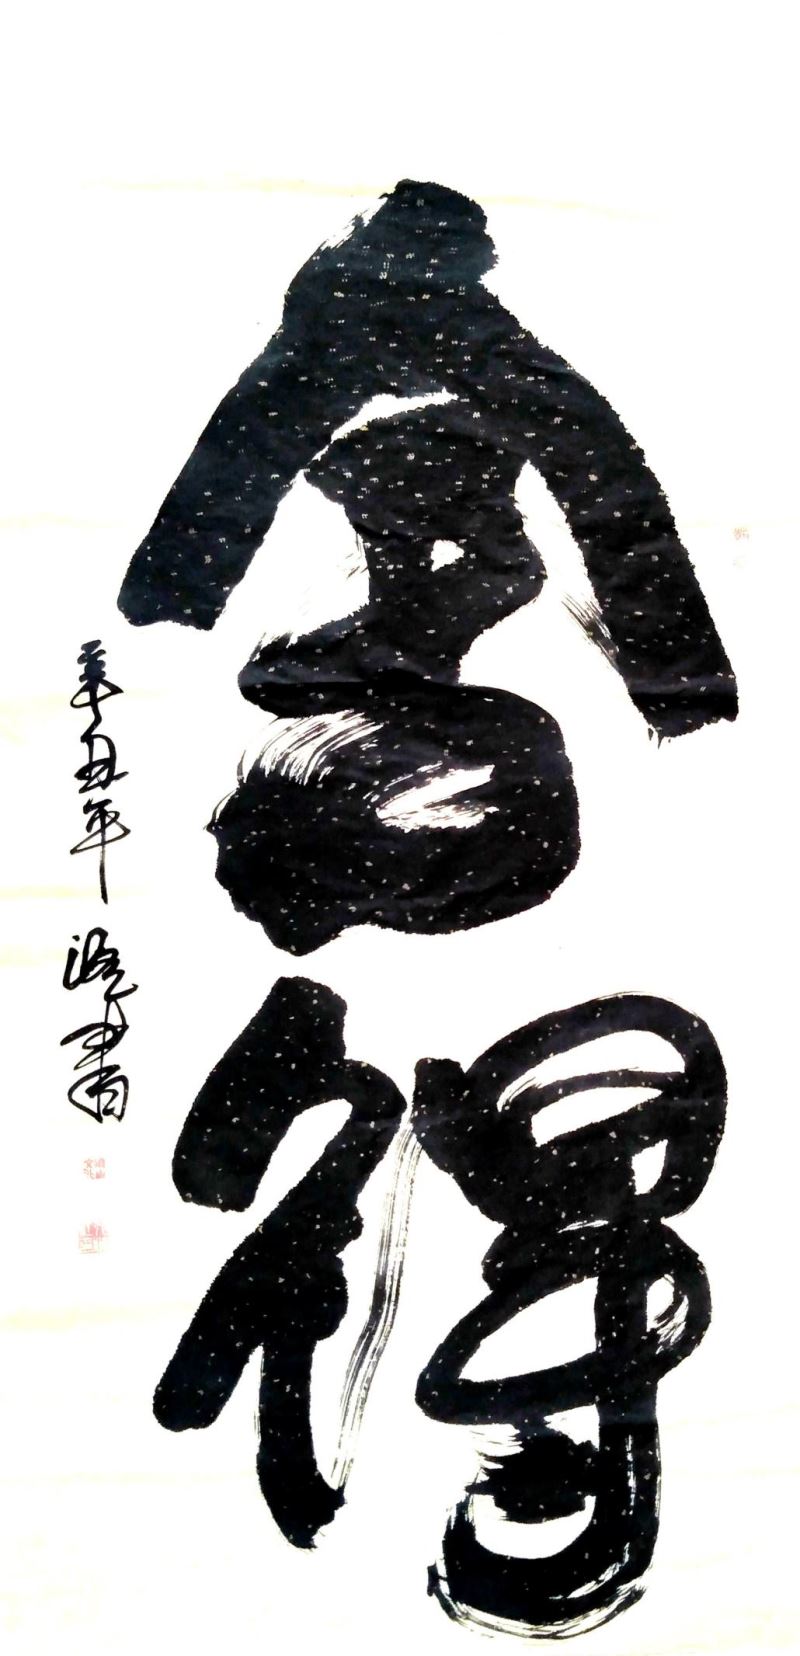 舍得
辛丑年 書